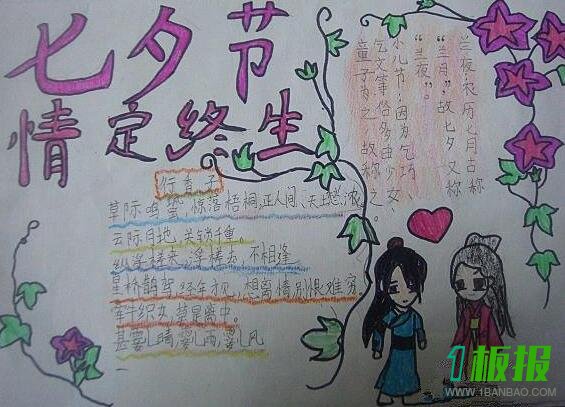 七夕节
情定终生
行香子
草际鸣蛩,惊落梧桐,正人间、天上愁浓
云际月地,关锁千重。
纵浮槎来,浮槎去,不相逢
星桥鹊驾,经年才见,想离情别恨难穷。
牵牛织女,莫是离中。
甚霎儿晴,霎儿雨,霎儿风
兰夜:农历七月古称
“兰月”,故七夕又称
“兰夜”。
小儿节:因为乞巧、
乞文等俗多由少女、
童子为之,故称之。
1板报
WWW.1BANBAO.COM